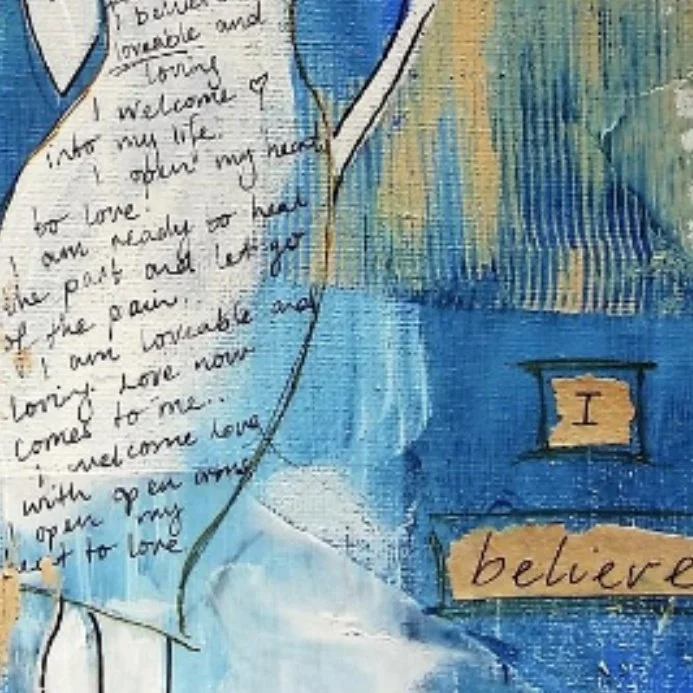 I believe
loveable and
loving
I welcome
into my life.
I open my heart
to love.
I am ready to heal
the past and let go
of the pain..
I am loveable and
loving. Love now
comes to me..
I welcome love
with open arms
I open my
heart to love
I
believe